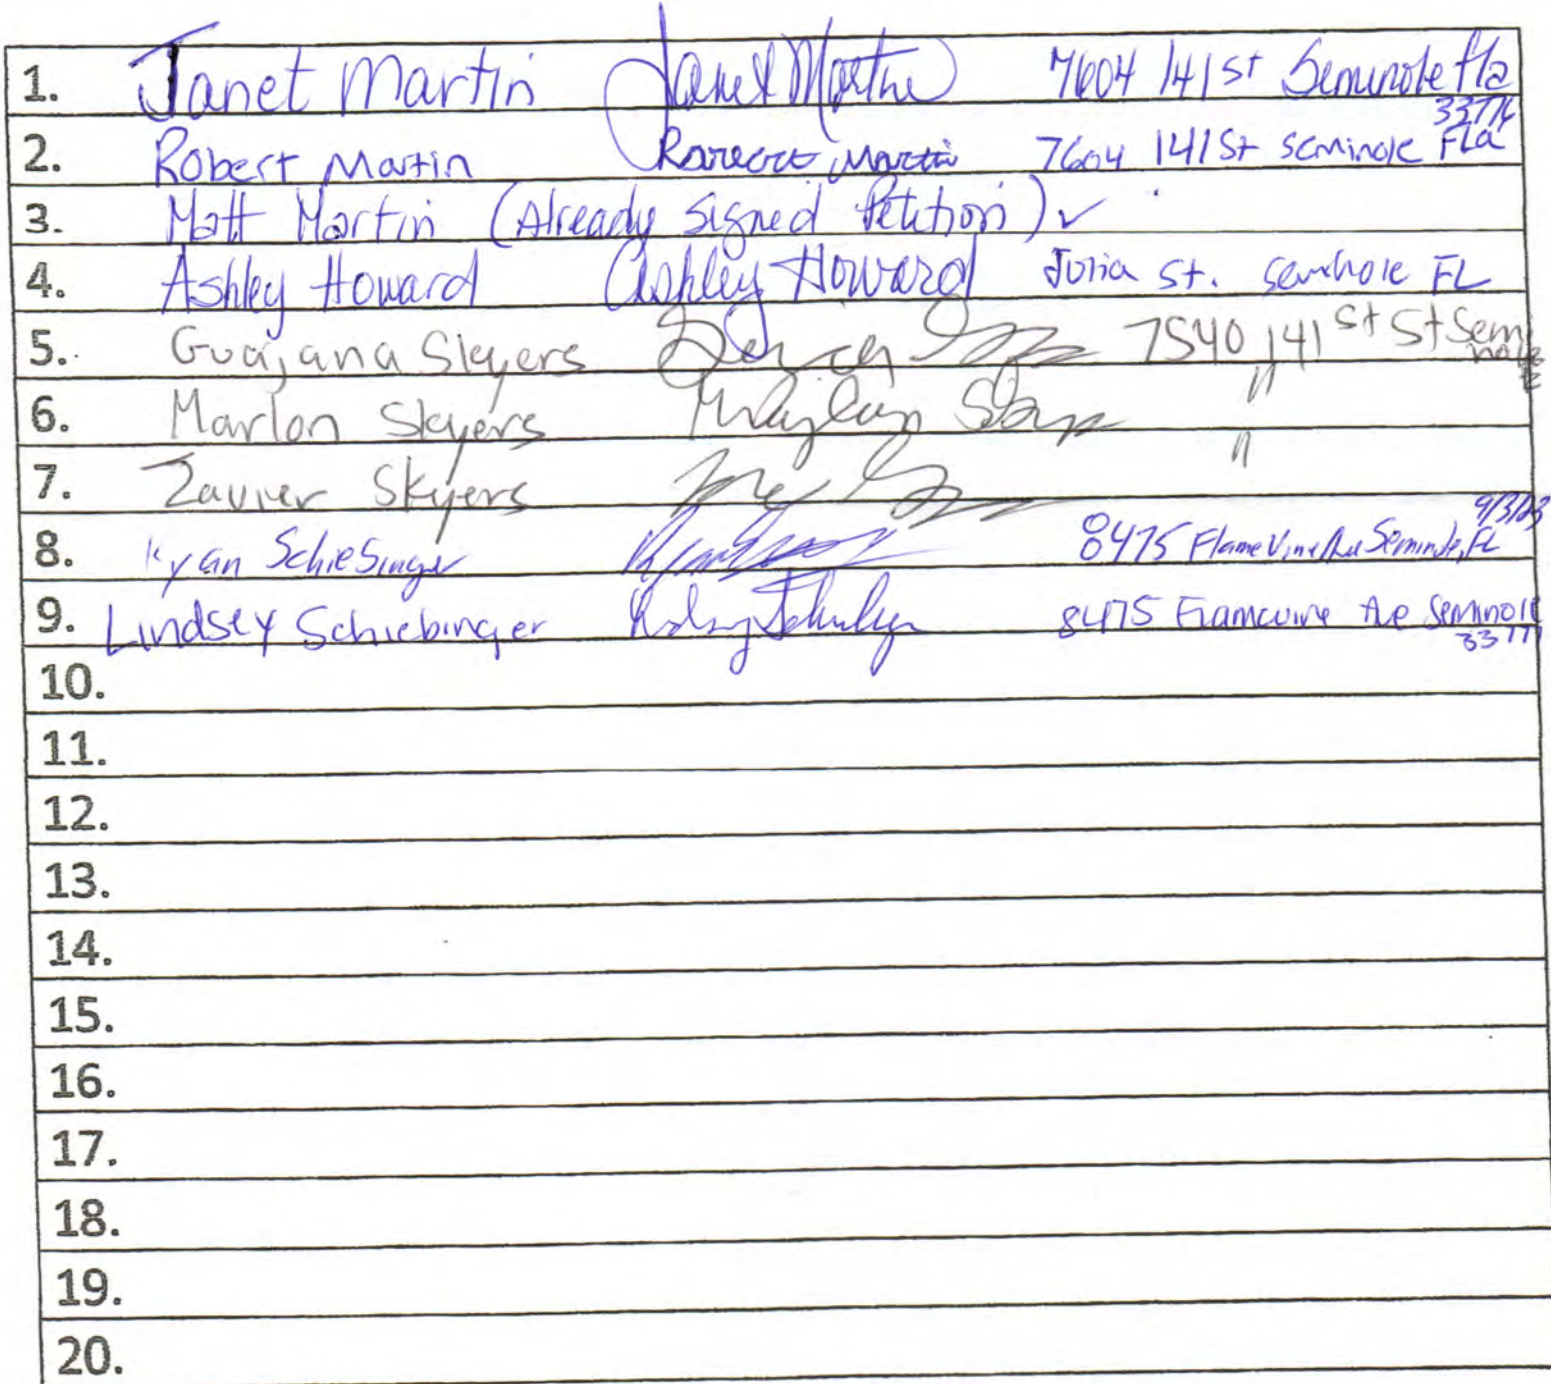 1. Janet Martin Janet Martin 7604 141 St Seminole Fla
33776
2. Robert Martin Martin 7604 141 St Seminole Fla
3. Matt Martin (Already Signed Petition) ✓
4. Ashley Howard Ashley Howard Julia St. Seminole FL
5. Guajana Skyers 7540 141 St St Seminole
6. Marlon Skyers "
7. Zavier Skyers "
9/3/23
8. Ryan Schiebinger 8475 Flame Vine Ave Seminole, FL
9. Lindsey Schiebinger 8475 Flamevine Ave Seminole
33777
10.
11.
12.
13.
14.
15.
16.
17.
18.
19.
20.